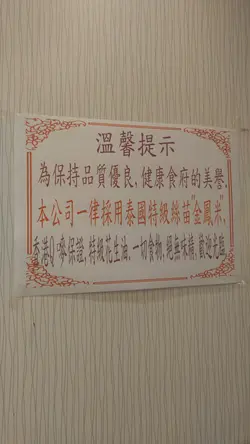 溫馨提示
為保持品質優良,健康食府的美譽.
本公司一律採用泰國特級絲苗"金鳳米",
香港Q嘜保證,特級花生油.一切食物,絕無味精,歡迎光臨.